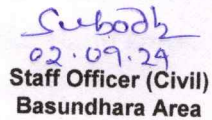 Subodh
02.09.24
Staff Officer (Civil)
Basundhara Area